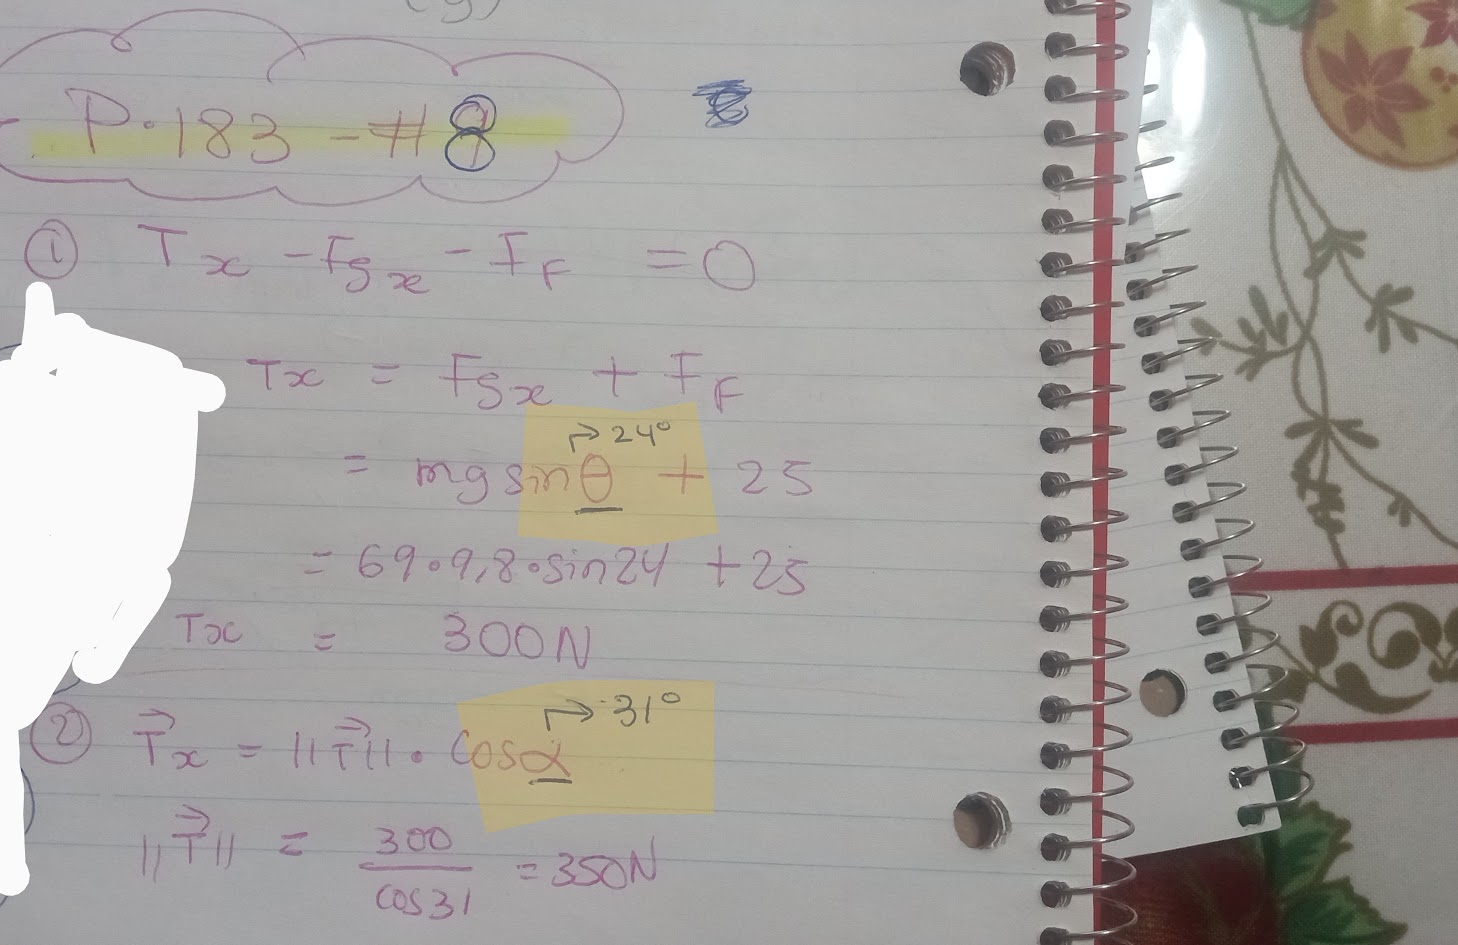 (g)
P.183 - #8
① Tx - Fgx - FF = 0
Tx = Fgx + FF
↱ 24°
= mg sinθ + 25
= 69•9,8•sin24 + 25
Tx = 300N
↱ 31°
② T⃗x = ||T⃗||• cosα
||T⃗|| = 300/cos31 = 350N